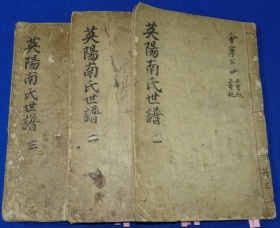 英陽南氏世譜 一
英陽南氏世譜 二
英陽南氏世譜 三
共三